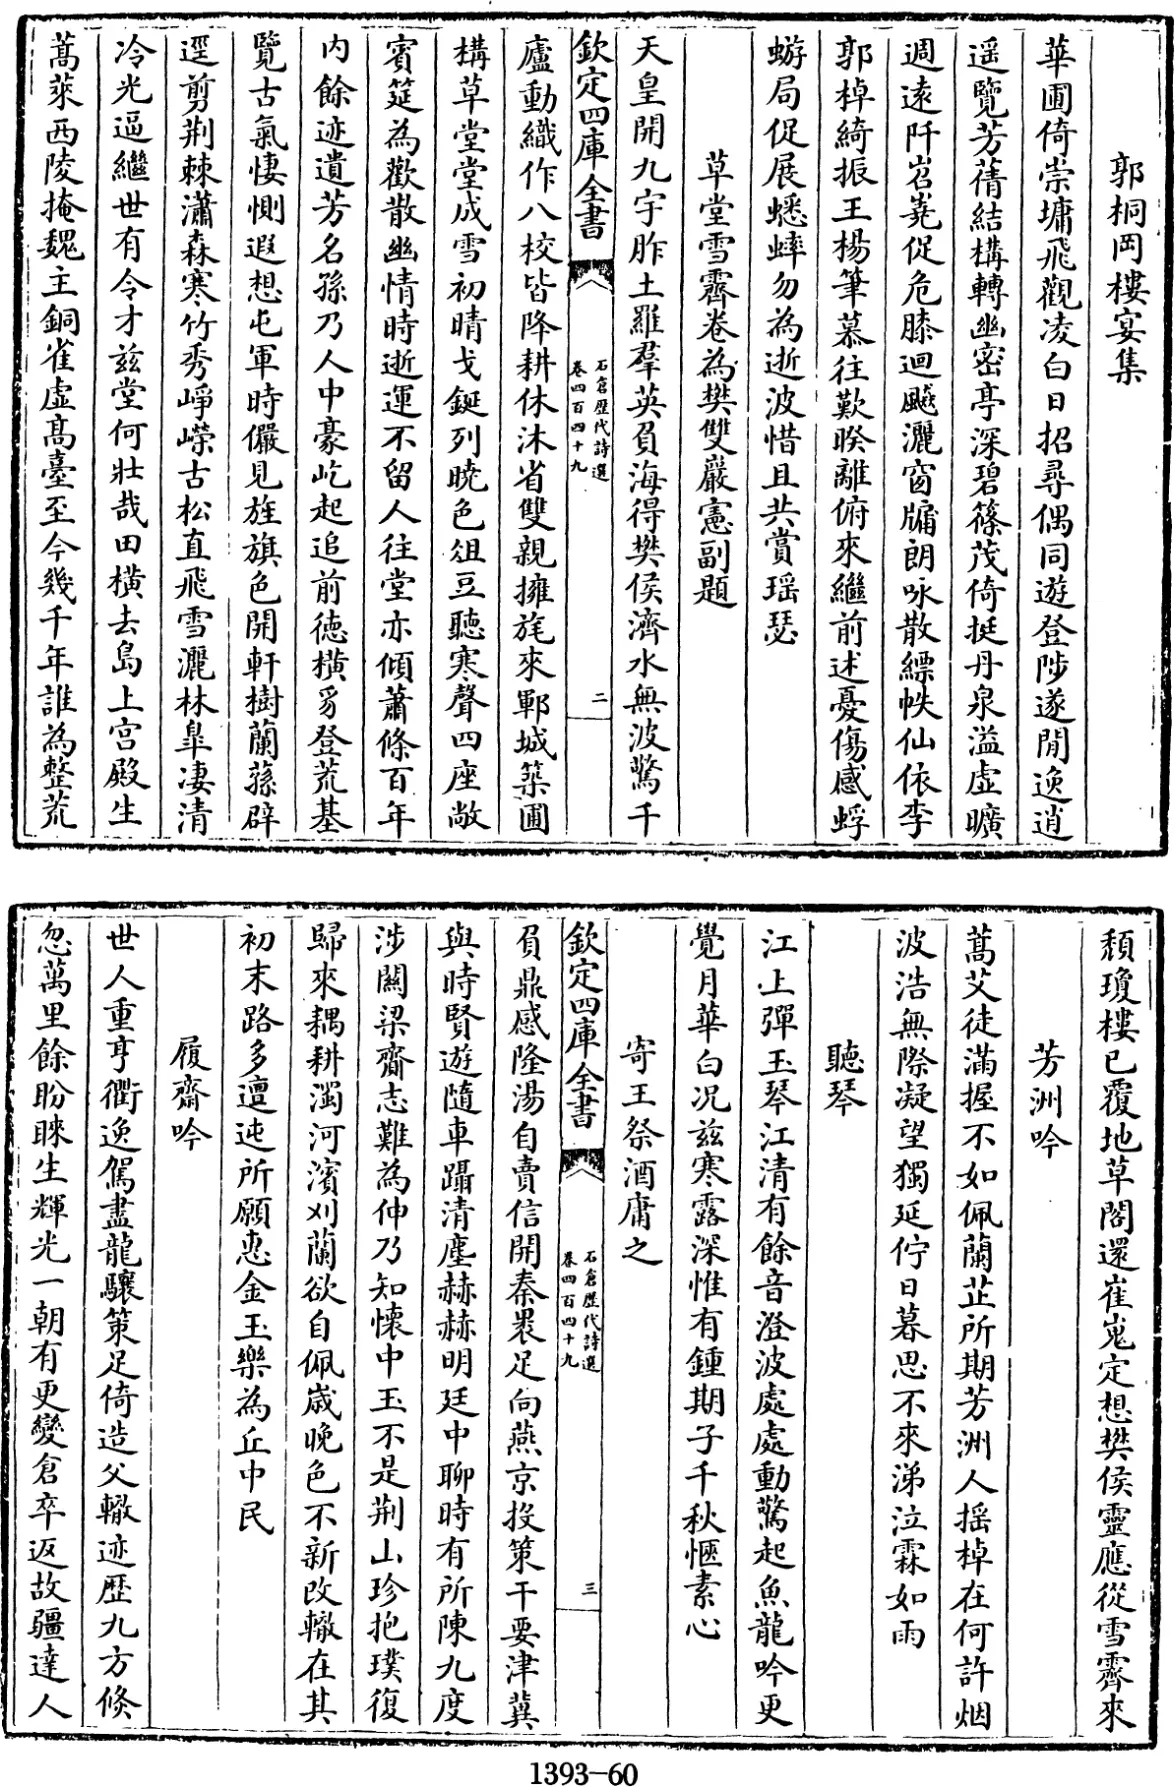 郭桐岡樓宴集
華圃倚崇墉飛觀凌白日招尋偶同遊登陟遂閒逸逍
遥覽芳蒨結構轉幽密亭深碧篠茂倚挺丹泉溢虛曠
週遠阡岧嶤促危膝迴飈灑窗牖朗咏散縹帙仙依李
郭棹綺振王楊筆慕往歎睽離俯來繼前述憂傷感蜉
蝣局促展蟋蟀勿為逝波惜且共賞瑶瑟
草堂雪霽卷為樊雙巖憲副題
天皇開九宇胙土羅羣英負海得樊侯濟水無波驚千
欽定四庫全書
石倉歴代詩選
卷四百四十九
二
廬動織作八校皆降耕休沐省雙親擁旄來鄆城築圃
構草堂堂成雪初晴戈鋋列曉色俎豆聽寒聲四座敞
賓筵為歡散幽情時逝運不留人往堂亦傾蕭條百年
内餘迹遺芳名孫乃人中豪屹起追前徳横豸登荒基
覽古氣悽惻遐想屯軍時儼見旌旗色開軒樹蘭蓀辟
逕剪荆棘瀟森寒竹秀崢嶸古松直飛雪灑林臯凄清
冷光逼繼世有令才兹堂何壯哉田横去島上宫殿生
蒿萊西陵掩魏主銅雀虛髙臺至今幾千年誰為整荒
頹瓊樓已覆地草閣還崔嵬定想樊侯靈應從雪霽來
芳洲吟
蒿艾徒滿握不如佩蘭芷所期芳洲人摇棹在何許烟
波浩無際凝望獨延佇日暮思不來涕泣霖如雨
聽琴
江上彈玉琴江清有餘音澄波處處動驚起魚龍吟更
覺月華白况兹寒露深惟有鍾期子千秋愜素心
寄王祭酒庸之
欽定四庫全書
石倉歴代詩選
卷四百四十九
三
負鼎感隆湯自賣信開秦裹足向燕京投策干要津冀
與時賢遊隨車躡清塵赫赫明廷中聊時有所陳九度
涉關梁齋志難為伸乃知懷中玉不是荆山珍抱璞復
歸來耦耕濁河濱刈蘭欲自佩嵗晚色不新改轍在其
初末路多邅迍所願惠金玉樂為丘中民
履齋吟
世人重亨衢逸駕盡龍驤策足倚造父轍迹歴九方倏
忽萬里餘盼睞生輝光一朝有更變倉卒返故疆達人
1393-60